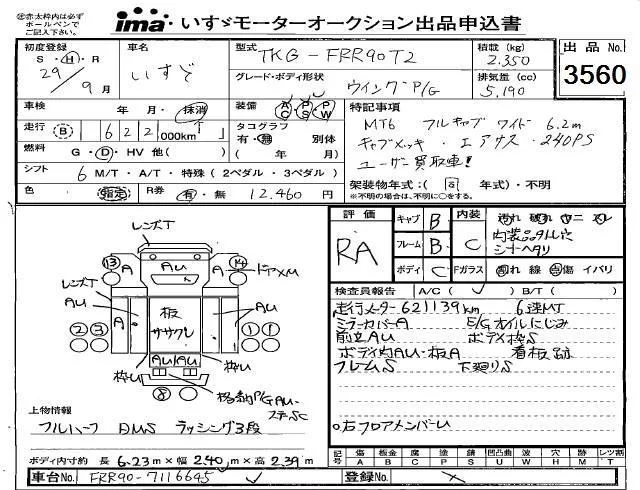 ㊟赤太枠内は必ず
ボールペンで
ご記入下さい。
ima いすゞモーターオークション出品申込書
初度登録
S・H・R
29年
9月
車名
いすゞ
型式
TKG-FRR90T2
グレード・ボディ形状
ウイング P/G
積載 (kg)
2.350
排気量 (cc)
5.190
出品 No.
3560
車検 年・月・抹消
走行 (B) 622,000km
燃料 G・D・HV 他( )
シフト 6 M/T・A/T・特殊(2ペダル・3ペダル)
色 指定
R券 有・無 12.460 円
装備 AC PS PW
タコグラフ
有・無 別体
( 年/ 月)
特記事項
MT6 フルキャブ ワイド 6.2m
キャブメッキ・エアサス・240PS
ユーザー買取車!
架装物年式:( 同 年式)・不明
※不明の場合は、不明に○をする。
評価
RA
キャブ B
フレーム B
ボディ C
内装 C
Fガラス
汚れ 破れ コニ スレ
内装品タルミ穴
シートヘタリ
割れ 線 点傷 イバリ
検査員報告 A/C( ✓ ) B/T( )
走行メーター621139km 6速MT
ミラーカバーA E/Gオイルにじみ
前立AU ボディ枠S
ボディ内AU・板A 看板跡
フレームS 下廻りS
○右フロアメンバーU
レンズT
⑬ A AU A ⑭
ドアメM
レンズT
AU
A
板
ササクレ
AU
② ③ ① ①
AU AU
枠U 枠U
⑧
格納P/G AU
ステーSC
上物情報
フルハーフ DMS ラッシング3段
ボディ内寸約 長 6.23 m × 幅 2.40 m × 高 2.39 m
車台No. FRR90-7116645
登録No.
記号 傷 板金 腐 塗 錆 凹凸曲 波 穴 跡 レッ割
A B C P S U W H M T